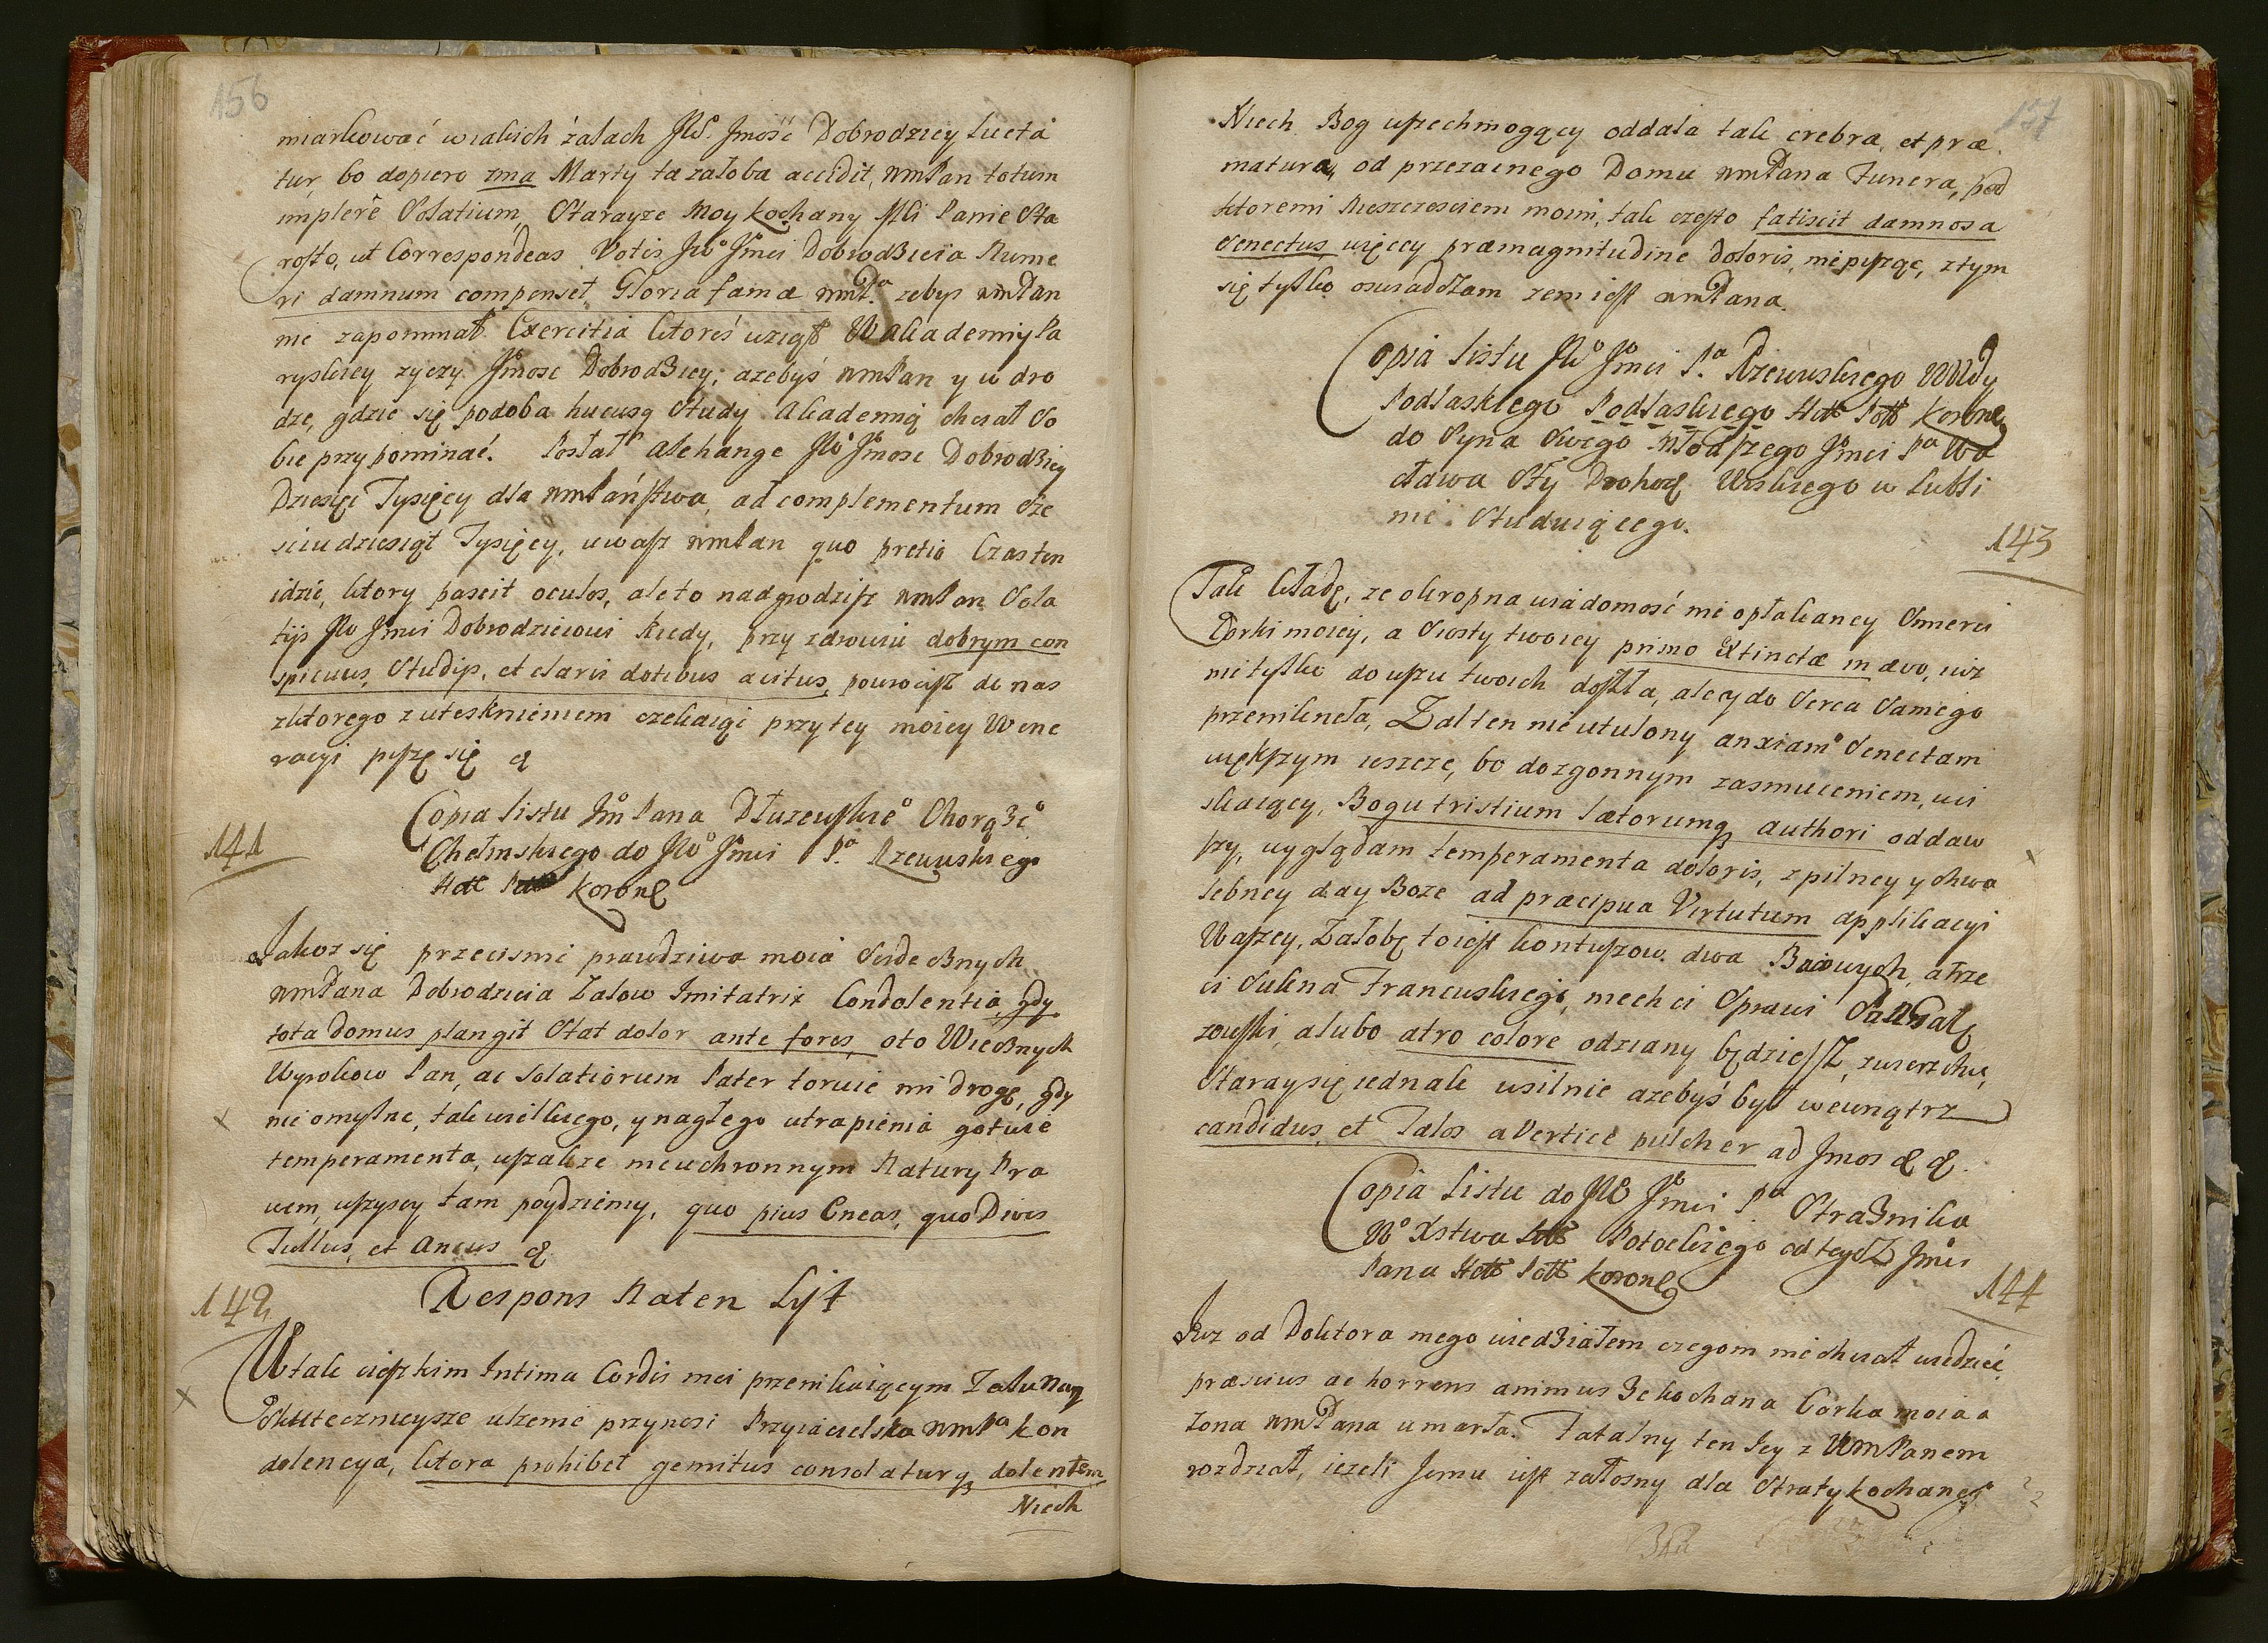 156
miarkować w iakich żalach JW. Jmość Dobrodziey lucta
tur, bo dopiero 2ma Marty ta załoba accidit, WmPan totum
implere Solatium, Starayze Moy kochany Mći Panie Sta
rosto, ut Correspondeas Votis JWo Jmći Dobrodzieia Nume
ri damnum compenset Gloria famæ WmPa zebys WmPan
nie zapomniał Exercitia ktoreś wziął W Akademiy Pa
ryskiey zyczy Jmość Dobrodziey, azebyś WmPan y w dro
dze, gdzie się podoba hucusq Study Akademią chciał So
bie przypominać. Posłał Alehange JWo Jmość Dobrodziey
Dziesięć Tysięcy dla WmPaństwa, ad complementum Sze
sciudziesiąt Tysięcy, uwasz WmPan quo pretio Czas ten
idzie, ktory pascit oculos, ale to nadgrodzisz WmPan Sola
tijs JW Jmći Dobrodzieiowi kiedy, przy zdrowiu dobrym con
spicuus, Studijs, et claris dotibus auctus, powrocisz do nas
z ktorego z utesknieniem czekaiąc przy tey moiey Wene
racyi piszę się &
Copia listu Jm Pana Dłuzewskie° Chorąże°
Chełmskiego do JWo Jmći Pa Rzewuskiego
Het Pol Koronę
141
Jakoz się przecismie prawdziwa moia Serdecznych
WmPana Dobrodzieia Zalow Imitatrix Condolentia, gdy
tota Domus plangit Stat dolor ante fores, oto Wiecznych
Wyrokow Pan, ac Solatiorum Pater toruie mi drogę, gdy
nieomylne, tak wielkiego, y nagłego utrapienia gotuie
temperamenta, wszakze nieuchronnym Natury Pra
wem, wszyscy tam poydziemy, quo pius Eneas, quo Dives
Tullus, et Ancus &
142
Respons Na ten List
W tak cięszkim Intima Cordis mei przenikaiącym Zalu Nay
skutecznieysze ulzenie przynosi Przyiacielska WmPa kon
dolencya, ktora prohibet gemitus consolaturq dolentem
Niech
157
Niech Bog wszechmogący oddala tak crebra, et præ
matura, od przezacnego Domu WmPana Funera, pod
ktoremi Nieszczesciem moim, tak często fatiscit damnosa
Senectus, więcey præ magnitudine Doloris, nie pisząc, z tym
się tylko oswiadczam zem iest WmPana.
Copia listu JWo Jmći Pa Rzewuskiego WWdy
Podlaskiego Podlaskiego Het Pol Koronę
do Syna Swego Młodszego Jmći Pa Wa
cława Stty Drohoc Wskiego w Lubli
nie Studuiącego.
143
Tak kładę, ze okropna wiadomość nieopłakaney Smierci
Corki moiey, a Siostry twoiey primo extinctæ in ævo, iuz
nie tylko do uszu twoich doszła, ale y do Serca Samego
przeniknęła, Zal ten nieutulony anxiam Senectam
większym ieszcze, bo dozgonnym zasmuceniem, uci
skaiący, Bogu tristium lætorumq authori oddaw
szy, wyglądam temperamenta doloris, z pilney y chwa
lebney day Boze ad præcipua Virtutum applikacyi
Waszey, Załobę to iest kontuszow dwa Baiowych, a trze
ci Sukna Francuskiego, niech ci Sprawi
zewski, a lubo atro colore odziany będziesz, zwierzchu,
Staray się iednak usilnie azebyś był wewnątrz
candidus, et Talos a Vertice pulcher ad Imos & &.
Copia Listu do JWo Jmći Pa Strażnika
Wo Xstwa Litt Potockiego od tegoż Jmći
Pana Hett Poll Koronę
144
Juz od Doktora mego wiedziałem czegom nie chciał wiedzieć,
præscius ac horrens animus że kochana Corka moia a
Zona WmPana umarła. Fatalny ten Jey z WmPanem
rozdział, iezeli Jemu iest załosny dla Straty kochaney